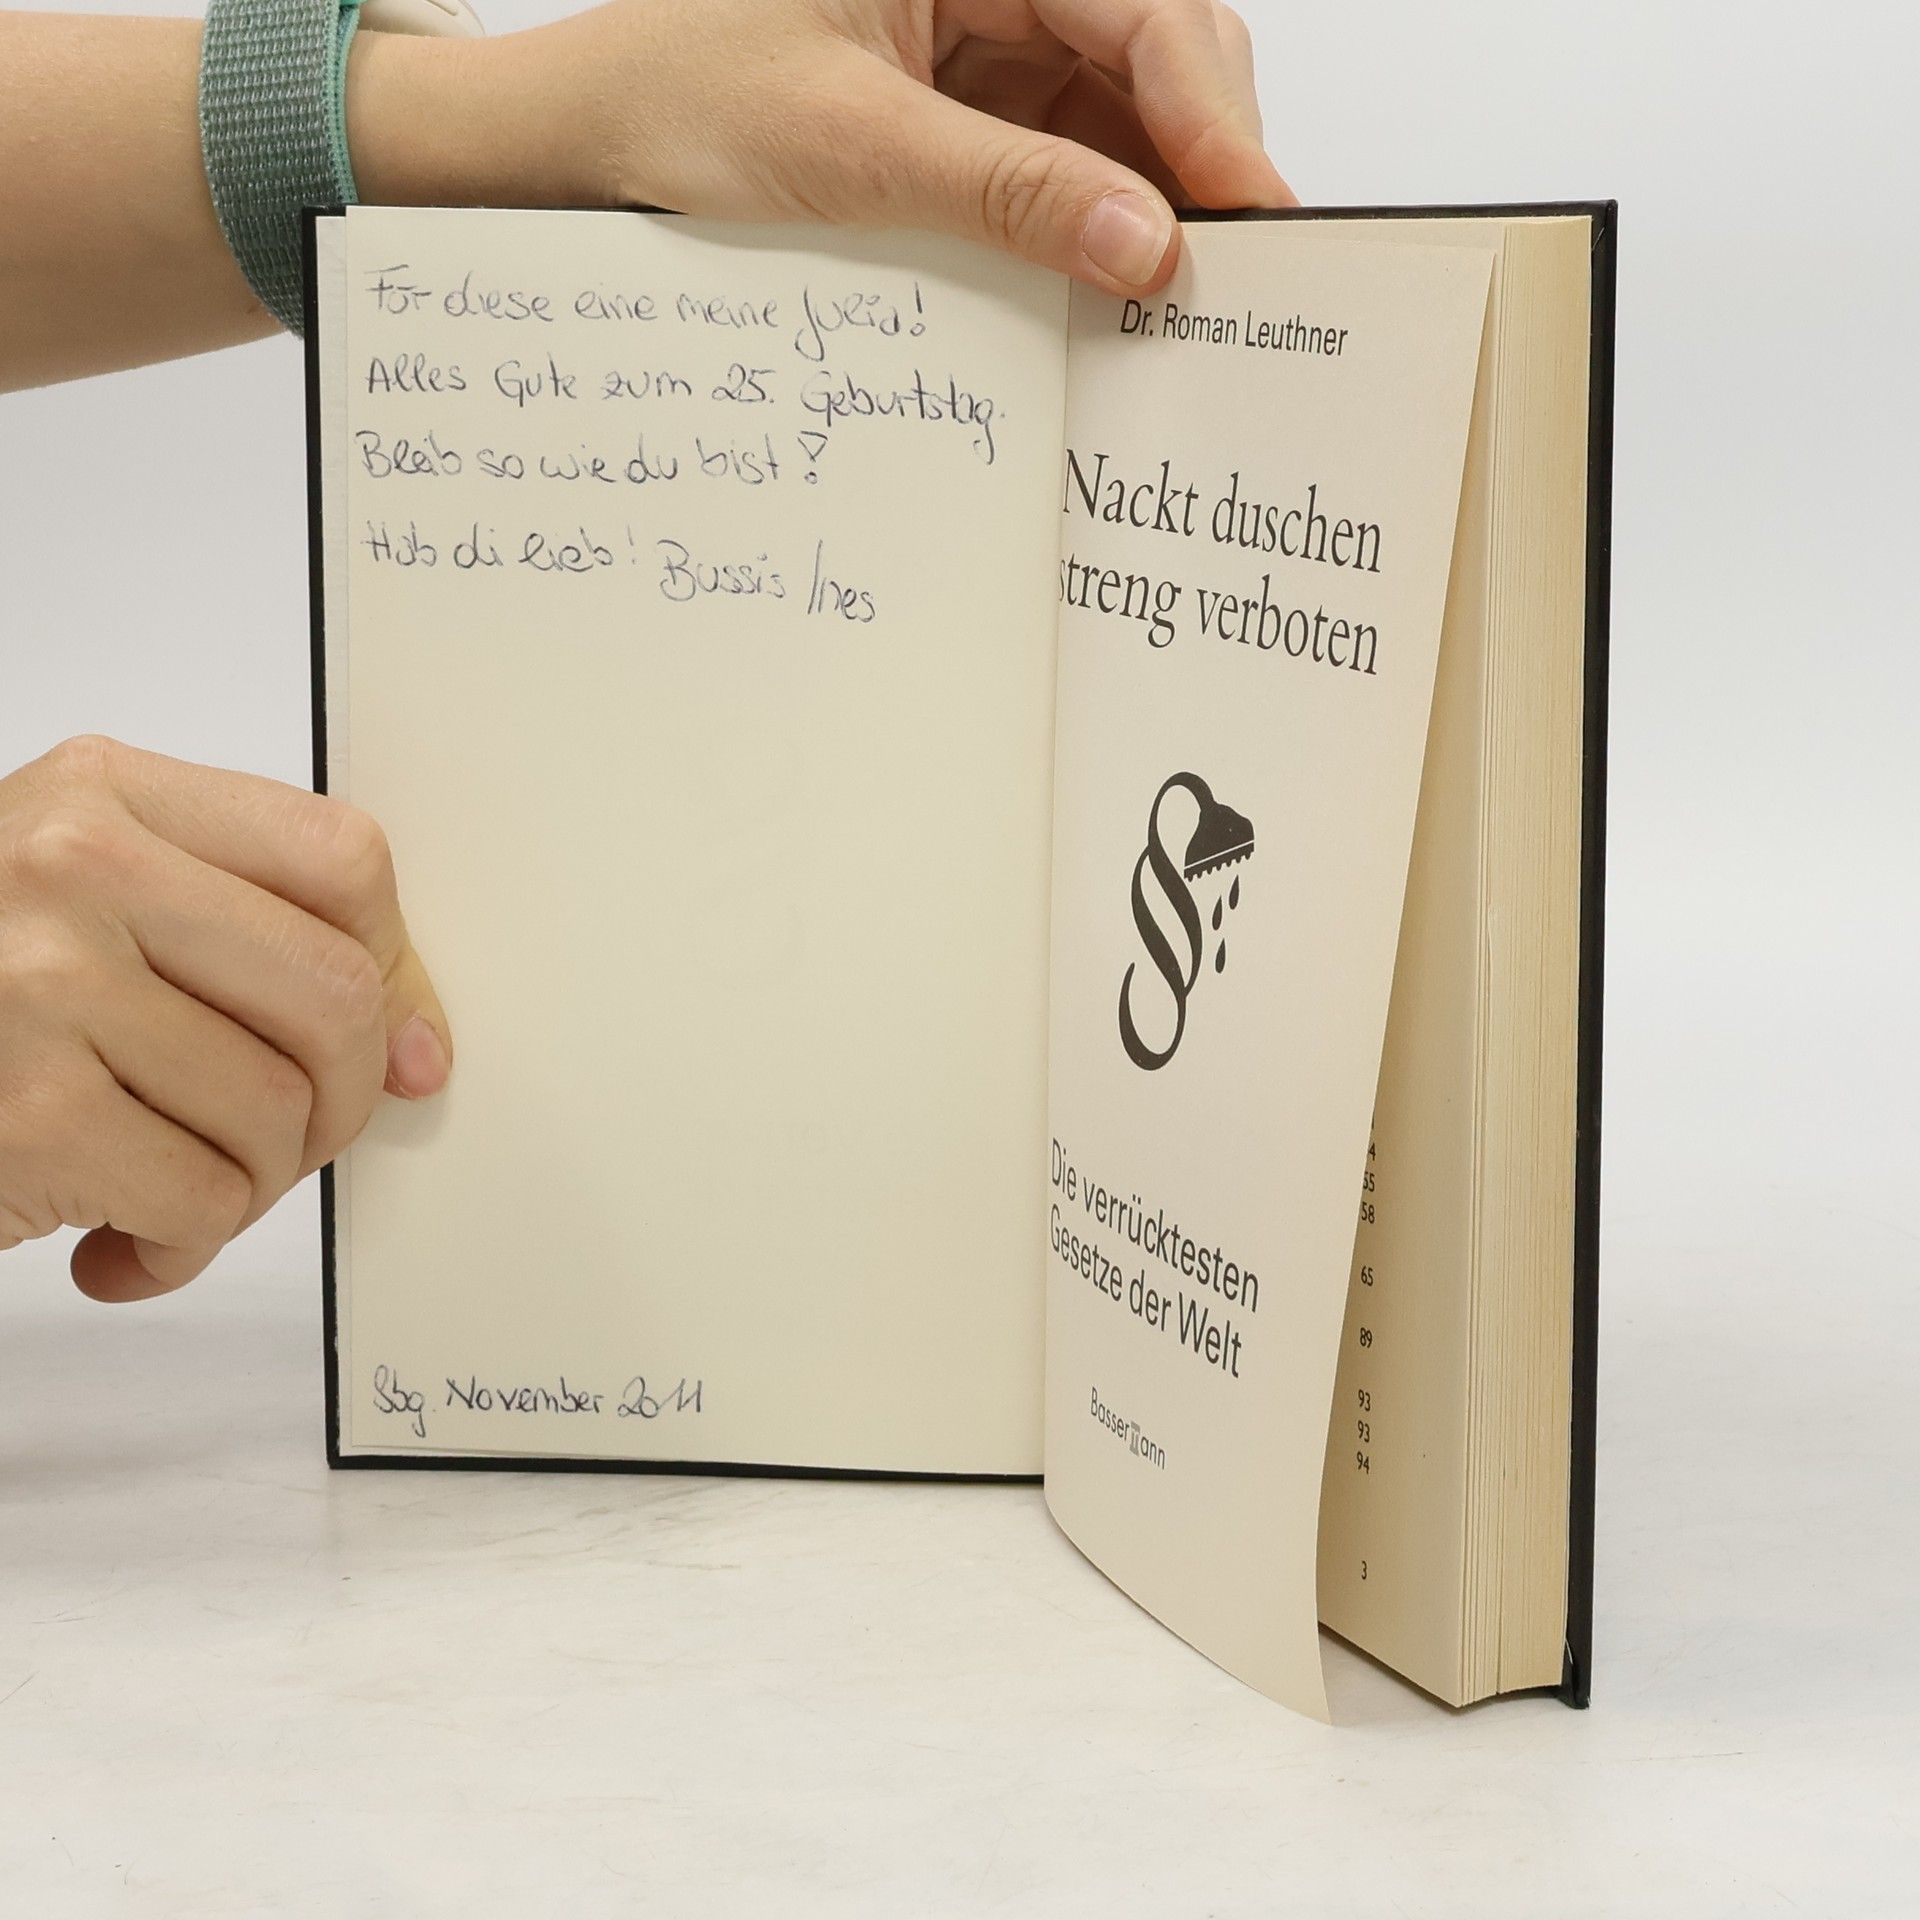 Für diese eine meine Julia!
Alles Gute zum 25. Geburtstag.
Bleib so wie du bist!
Hab di lieb! Bussis Ines
Sbg. November 2011
Dr. Roman Leuthner
Nackt duschen
streng verboten
§
Die verrücktesten
Gesetze der Welt
Bassermann
4
55
58
65
89
93
93
94
3